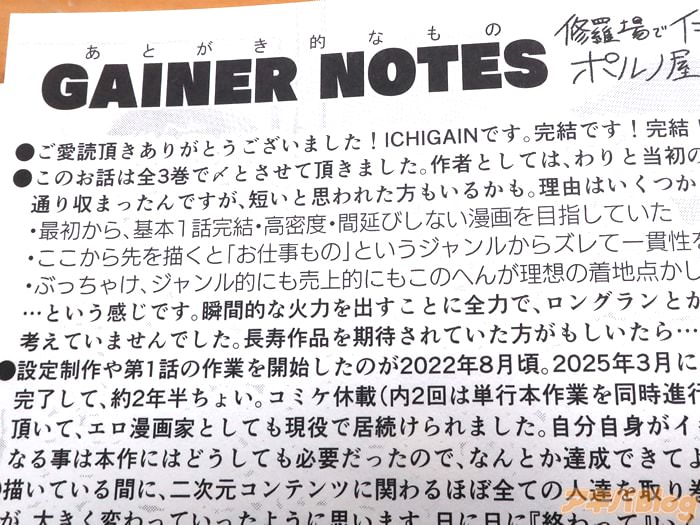 あとがき的なもの
GAINER NOTES
修羅場で
ポルノ屋
●ご愛読頂きありがとうございました！ICHIGAINです。完結です！完結！
●このお話は全3巻で〆とさせて頂きました。作者としては、わりと当初の
通り収まったんですが、短いと思われた方もいるかも。理由はいくつか
・最初から、基本1話完結・高密度・間延びしない漫画を目指していた
・ここから先を描くと「お仕事もの」というジャンルからズレて一貫性を
・ぶっちゃけ、ジャンル的にも売上的にもこのへんが理想の着地点かし
…という感じです。瞬間的な火力を出すことに全力で、ロングランとか
考えていませんでした。長寿作品を期待されていた方がもしいたら…
●設定制作や第1話の作業を開始したのが2022年8月頃。2025年3月に
完了して、約2年半ちょい。コミケ休載（内2回は単行本作業を同時進行
頂いて、エロ漫画家としても現役で居続けられました。自分自身がイ
なる事は本作にはどうしても必要だったので、なんとか達成できてよ
描いている間に、二次元コンテンツに関わるほぼ全ての人達を取り巻
が、大きく変わっていったように思います。日に日に『終わ
アキバBlog